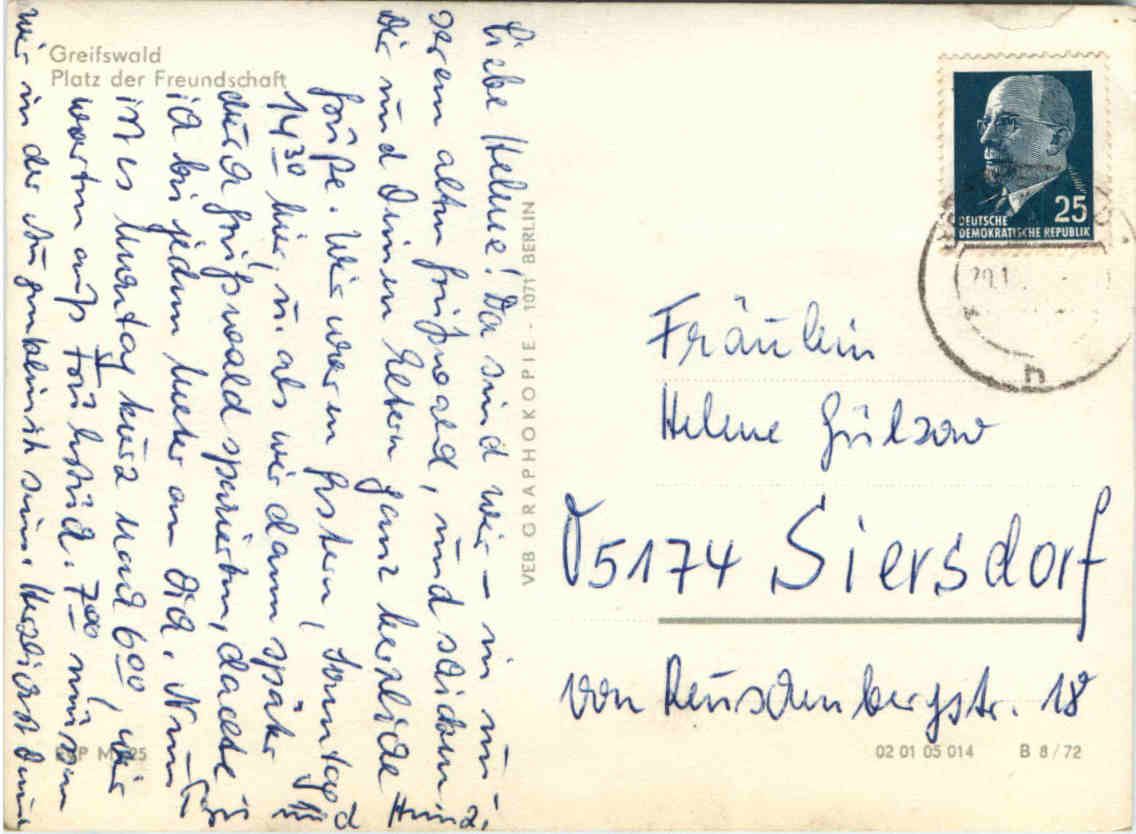 Greifswald
Platz der Freundschaft
Liebe Helene! Da sind wir – in un
serem alten Greifswald, und schicken
Dir und Deinen Eltern ganz herzliche
Grüße. Wir waren gestern, Sonntag
14³⁰ hier, u. als wir dann später
durch Greifswald spazierten, dachte
ich bei jedem Meter an Dich. Nun
ist es Montag kurz nach 6⁰⁰, wir
warten aufs Frühstück. 7⁰⁰ müssen
wir in der Augenklinik sein. Herzlichst Deine
VEB GRAPHOKOPIE - 1071 BERLIN
DEUTSCHE
DEMOKRATISCHE REPUBLIK
25
h
Fräulein
Helene Gülzow
D5174 Siersdorf
von Reuschenbergstr. 18
02 01 05 014 B 8/72